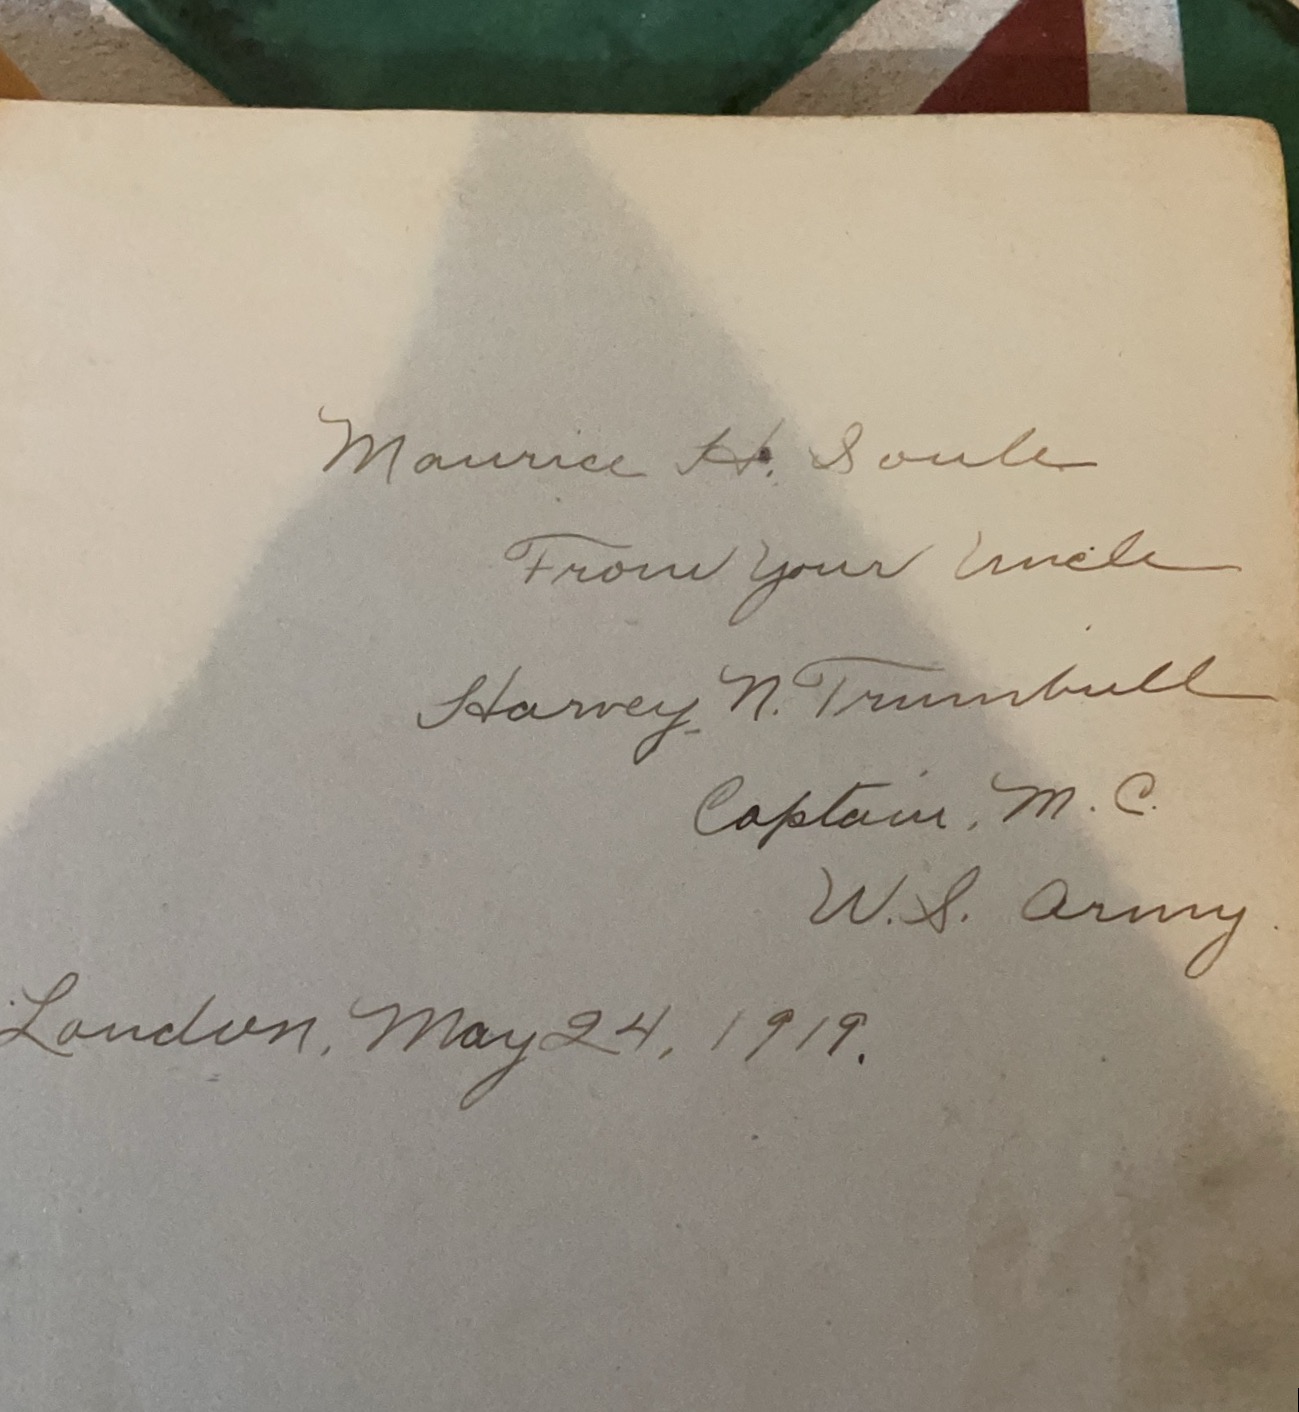 Maurice H. Soule
From Your Uncle
Harvey N. Trumbull
Captain, M. C.
U. S. Army.
London, May 24, 1919.